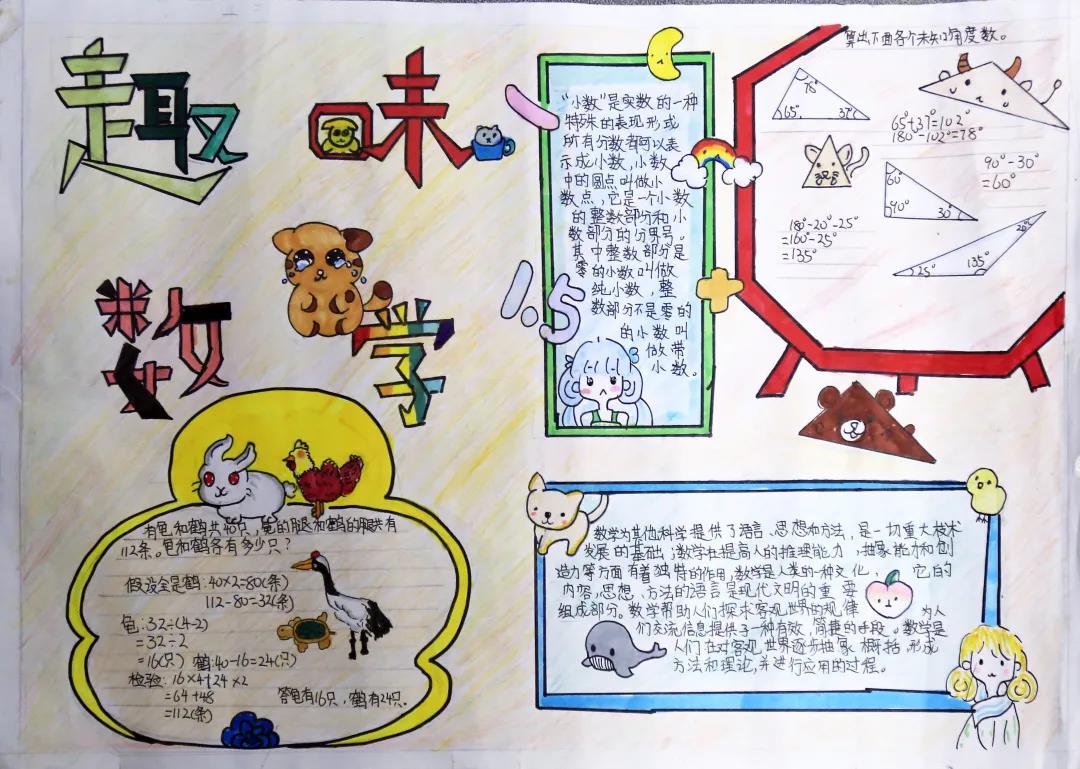 趣味
数学
"小数"是实数的一种
特殊的表现形式
所有分数都可以表
示成小数,小数
中的圆点叫做小
数点,它是一个小数
的整数部分和小
数部分的分界号。
其中整数部分是
零的小数叫做
纯小数,整
数部分不是零的
的小数叫
做带
小数。
1.5
算出下面各个未知角度数。
78°
65° 37°
65°+37°=102°
180°-102°=78°
60°
90° 30°
90°-30°
=60°
180°-20°-25°
=160°-25°
=135°
20°
25° 135°
有龟和鹤共40只,龟的腿和鹤的腿共有
112条。龟和鹤各有多少只?
假设全是鹤:40×2=80(条)
112-80=32(条)
龟:32÷(4-2)
=32÷2
=16(只) 鹤:40-16=24(只)
检验:16×4+24×2
=64+48
=112(条)
答龟有16只,鹤有24只.
数学为其他科学提供了语言、思想和方法,是一切重大技术
发展的基础;数学在提高人的推理能力,抽象能力和创
造力等方面有着独特的作用,数学是人类的一种文化、它的
内容,思想、方法的语言是现代文明的重要
组成部分。数学帮助人们探求客观世界的规律
为人
们交流信息提供了一种有效,简捷的手段。数学是
人们在对客观世界逐步抽象概括,形成
方法和理论,并进行应用的过程。